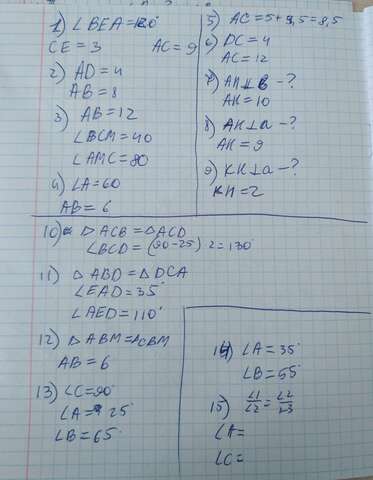 1) ∠BEA = 120°
CE = 3 AC = 9
2) AD = 4
AB = 8
3) AB = 12
∠BCM = 40
∠AMC = 80
4) ∠A = 60
AB = 6
5) AC = 5 + 3,5 = 8,5
6) DC = 4
AC = 12
7) AK ⊥ B - ?
AK = 10
8) AK ⊥ a - ?
AK = 9
9) KH ⊥ a - ?
KH = 2
10) △ ACB = △ACD
∠BCD = (90-25) · 2 = 130°
11) △ ABD = △ DCA
∠EAD = 35°
∠AED = 110°
12) △ ABM = △CBM
AB = 6
13) ∠C = 90°
∠A = 25°
∠B = 65°
14) ∠A = 35°
∠B = 55°
15) ∠1/∠2 = ∠2/∠3
∠A =
∠C =